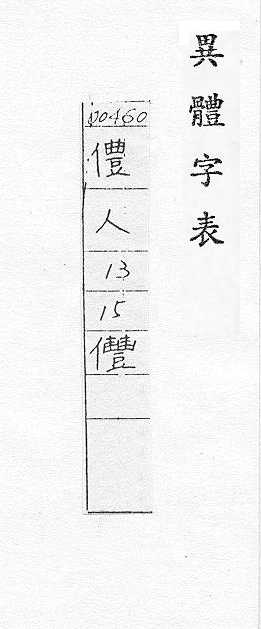 異體字表
僼
人
13
15